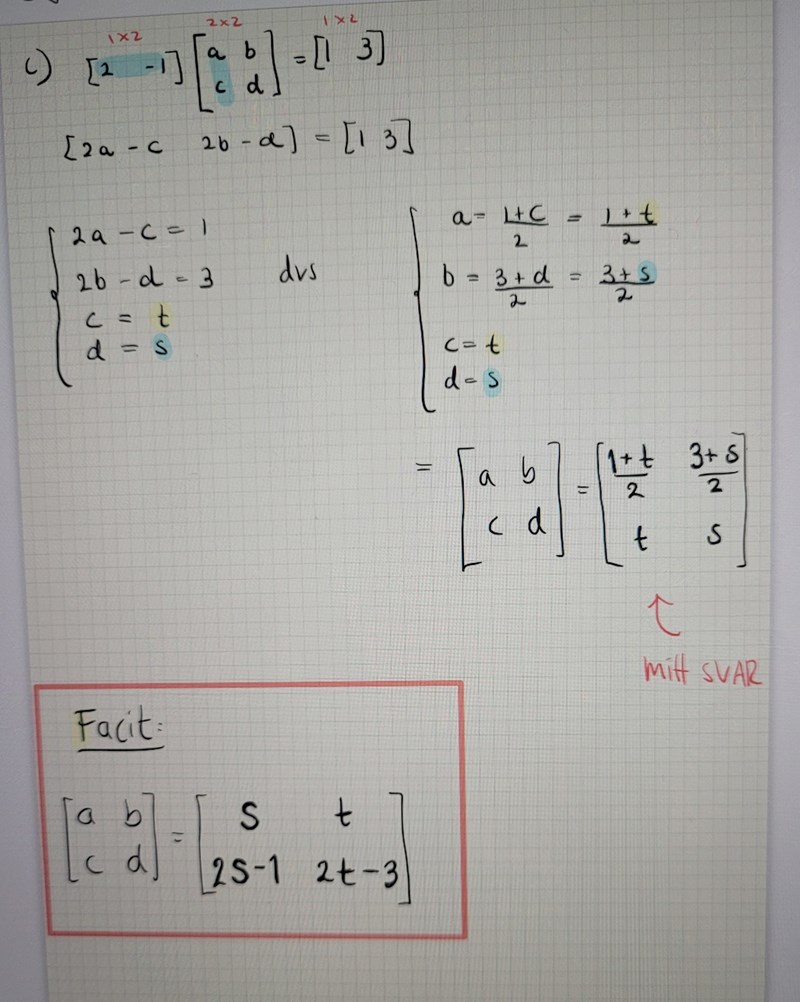 1×2 2×2 1×2
c) [2 -1] [a b; c d] = [1 3]
[2a - c 2b - d] = [1 3]
2a - c = 1
2b - d = 3 dvs
c = t
d = s
a = (1+c)/2 = (1+t)/2
b = (3+d)/2 = (3+s)/2
c = t
d = s
= [a b; c d] = [(1+t)/2 (3+s)/2; t s]
mitt SVAR
Facit:
[a b; c d] = [s t; 2s-1 2t-3]